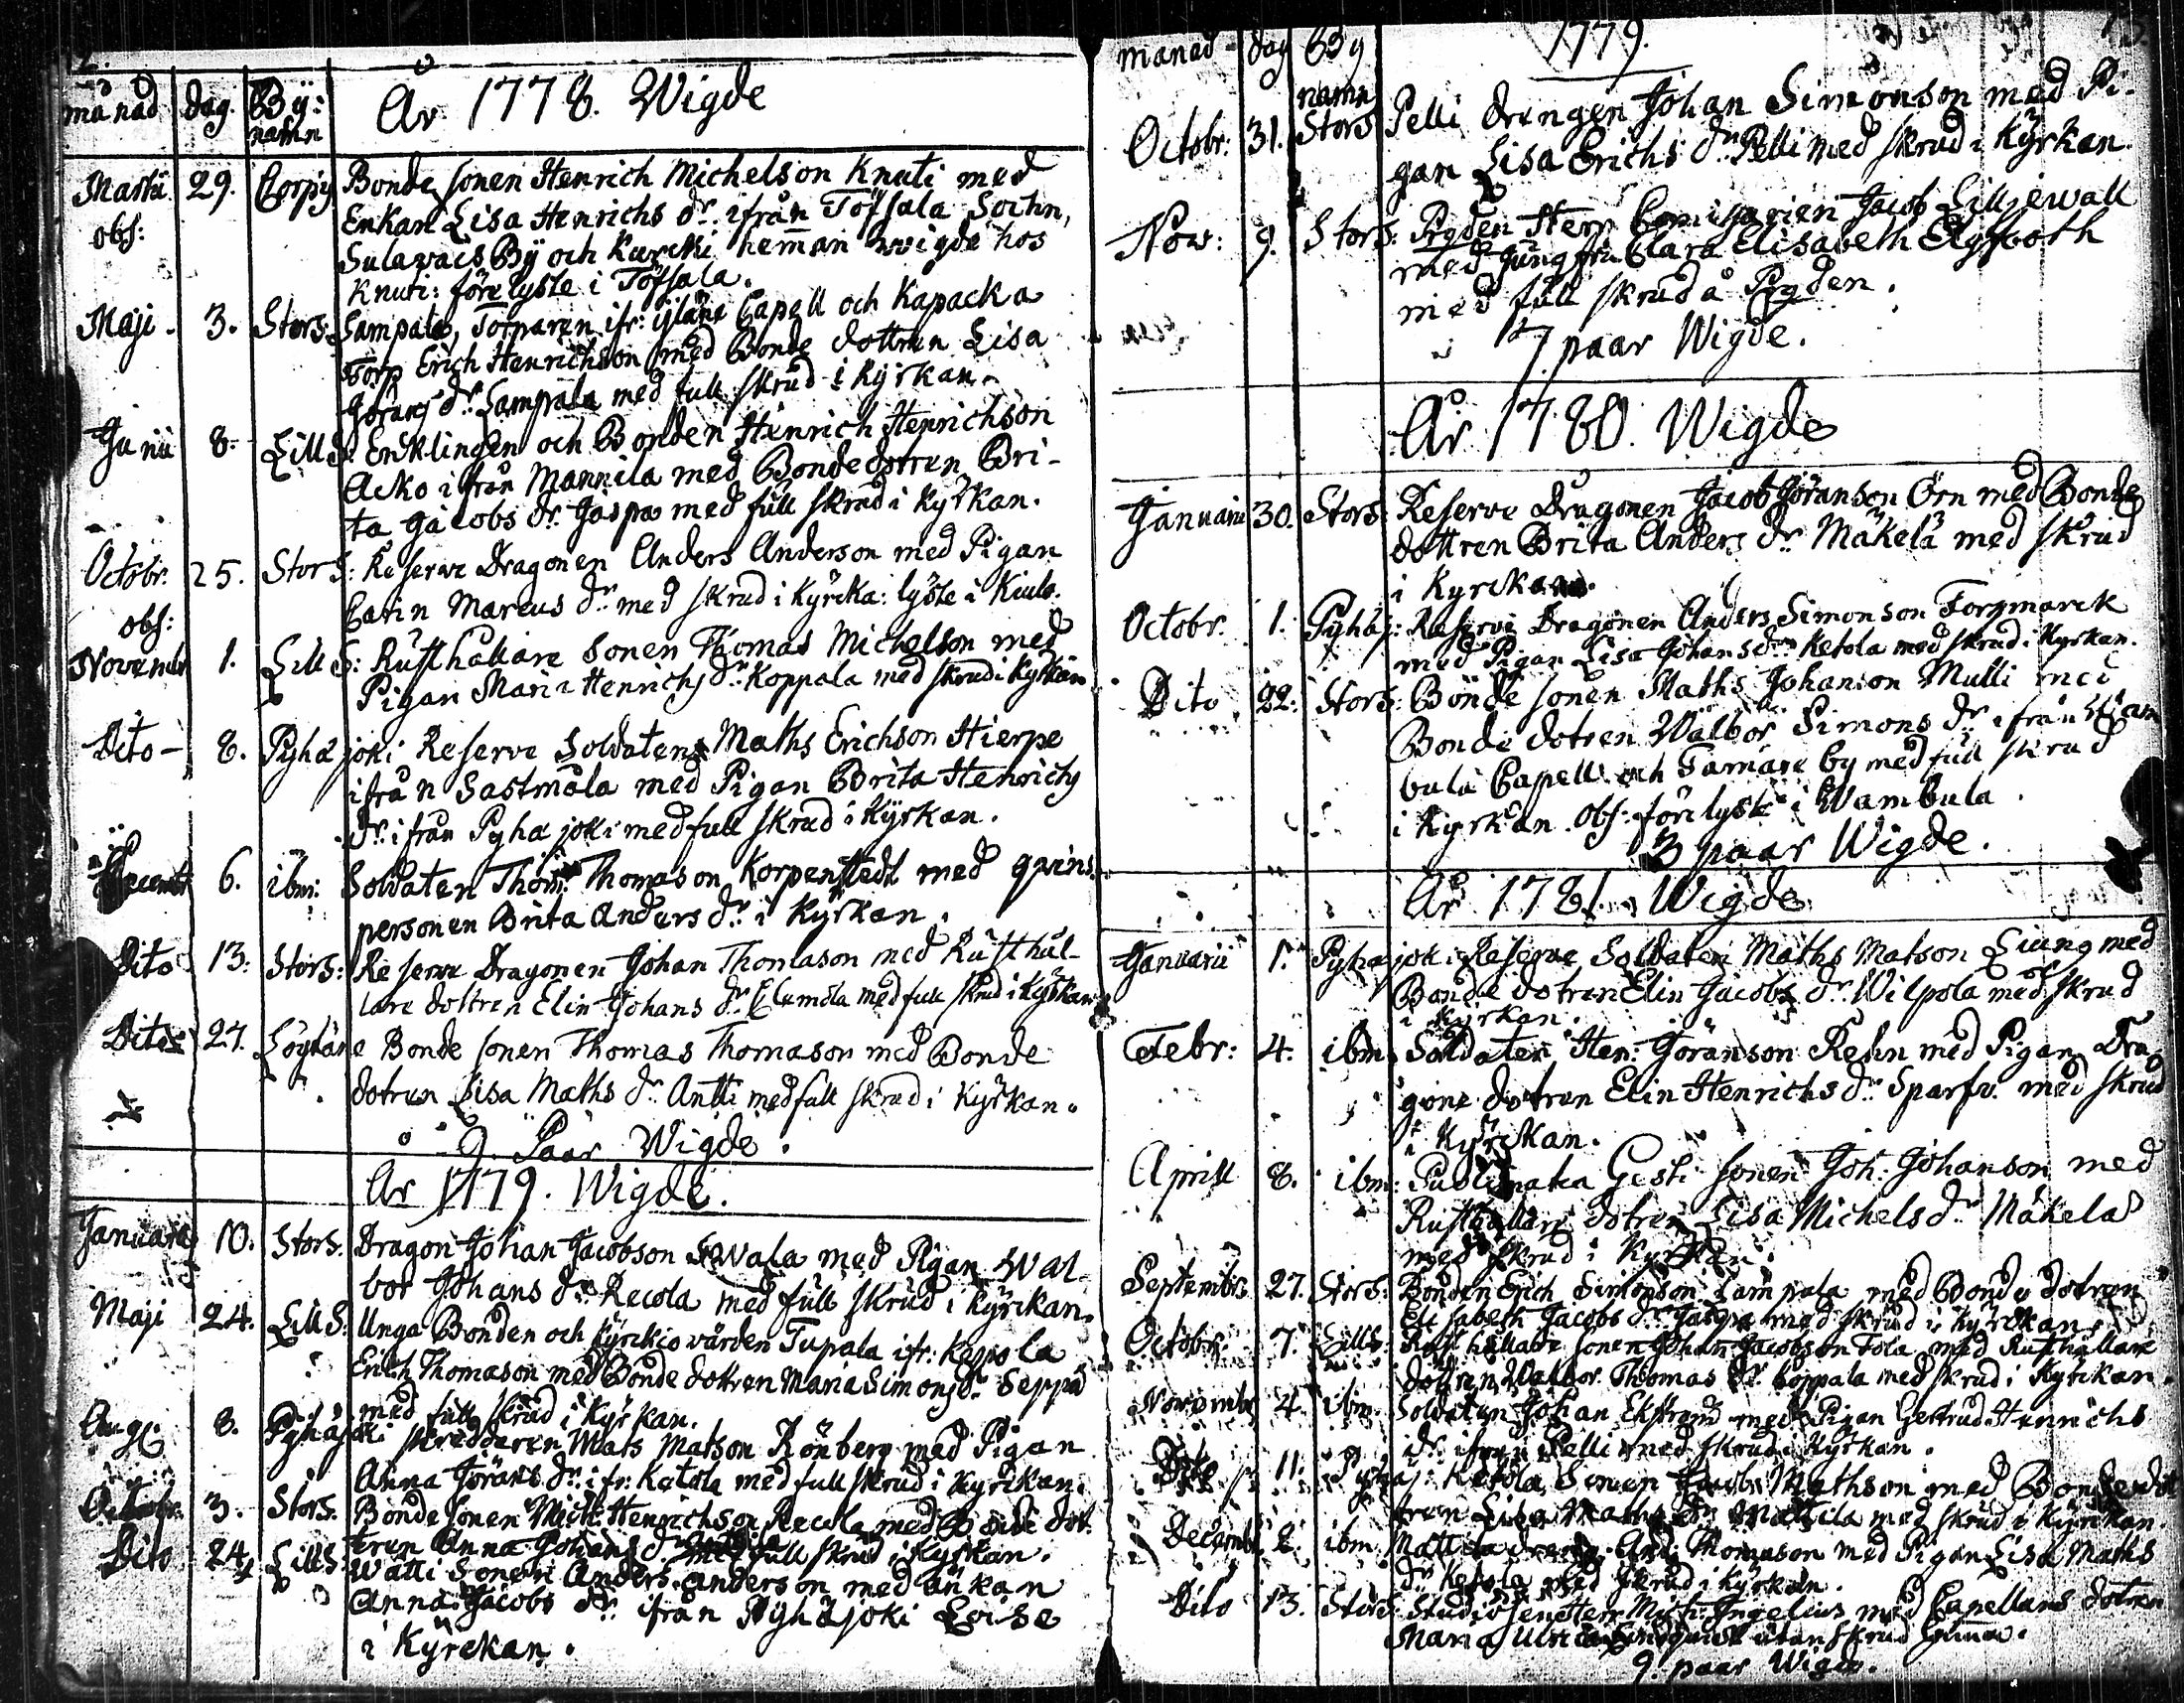 2.
månad dag. Bÿ: namn
År 1778. Wigde
Martii 29. Corpÿ Bonde sonen Henrich Michelson Knuti med
obs: Enkan Lisa Henrichs dr. ifrån Töfsala Sochn,
Sulavais Bÿ och Kurcki hemman wigde hos
Knuti: före lyste i Töfsala.
Maji 3. Stors. Sampala, Torparen ifr: ijläne Capell och Kapacka
Torp Erich Henrichson med Bonde dottren Lisa
Görans dr. Sampala med full skrud i Kyrkan.
Junii 8. Lill S: Encklingen och Bonden Henrich Henrichson
Acko ifrån Mannila med Bondedotren Bri-
ta Jacobs dr. Jaspa med full skrud i kyrkan.
Octobr. 25. Stor S: Reserve Dragonen Anders Anderson med Pigan
obs: Carin Marcus dr. med skrud i Kyrcka: lyste i Kiulo.
Novembr 1. Lill S: Rusthållare sonen Thomas Michelson med
Pigan Maria Henrichs dr. Koppala med skrud i Kyrkan
Dito - 8. Pyhäjoki Reserve Soldaten Maths Erichson Hierpe
ifrån Sastmola med Pigan Brita Henrichs
dr. ifrån Pyhäjoki med full skrud i Kyrkan.
Decembr 6. ibm: Soldaten Thom: Thomason Korpenstedt med qwins
personen Brita Anders dr. i Kyrkan.
Dito 13. Stors: Reserve Dragonen Johan Thomason med Rusthål-
lare dottren Elin Johans dr. Clemola med full skrud i Kyrkan
Dito 27. Löytäne Bonde sonen Thomas Thomason med Bonde
dotren Lisa Maths dr. Antti med full skrud i Kyrkan.
9. Paar Wigde.
År 1779. Wigde.
Januarii 10. Stors. Dragon Johan Jacobson Sowala med Pigan Wal-
bor Johans dr. Recola med full skrud i kyrckan.
Maji 24. Lill S: Unga Bonden och Kyrckio wärden Tupala ifr: Keppola
Erich Thomason med Bonde dottren Maria Simons dr. Seppä
med full skrud i Kyrkan.
Aug: 8. Pyhäjoki skreddaren Mats Matson Rönberg med Pigan
Anna Jörans dr. ifr: Ketola med full skrud i Kyrkan.
Octobr. 3. Stors. Bonde sonen Mich: Henrichson Recola med Bonde dot
tren Anna Johans dr. med full skrud i Kyrkan.
Dito 24. Lill S: Watti Sonen Anders Anderson med änkan
Anna Jacobs dr. ifrån Pyhäjoki
i Kyrckan.
månad dag By namn
1779.
Octobr: 31. Stors Pelli drengen Johan Simonson med Pi-
gan Lisa Erichs dr. Pelli med skrud i Kyrkan
Nov: 9. Stors: Pryden Herr Comisarien Jacob Lilljewall
med Jungfru Clara Elisabeth Elgfooth
med full skrud å Pryden.
7. paar Wigde.
År 1780. Wigde
Januarii 30. Stors: Reserve Dragonen Jacob Jöranson Örn med Bonde
dottren Brita Anders dr. Mäkelä med skrud
i Kyrckan.
Octobr. 1. Pyhäj: Reserve Dragonen Anders Simonson Forssmarck
med Pigan Lisa Johans dr. Ketola med skrud i Kyrkan.
Dito 22. Stors: Bonde sonen Maths Johanson Mulli med
Bonde dotren Walbor Simons dr. ifrån Wam
bula Capell och Tamare by med full skrud
i Kyrkan. obs: före lyste i Wambula.
3 paar Wigde.
År 1781. Wigde
Januarii 1. Pyhäjoki Reserve Soldaten Maths Matson Liung med
Bonde dotren Elin Jacobs dr. Wilpola med skrud
i Kyrkan.
Febr: 4. ibm Soldaten Hen: Göranson Rehn med Pigan Dra
gone dotren Elin Henrichs dr. Sparfv. med skrud
i Kyrckan.
Aprill 8. ibm: Gesti sonen Joh: Johanson med
Rusthållare dotren Lisa Michels dr. Mäkelä
med skrud i Kyrkan.
Septembr 27. Stors: Bonden Erich Simonson Sampala med Bonde dotren
Elisabeth Jacobs dr. Jaspa med skrud i Kyrckan.
Octobr: 7. Lill S: Rusthållare sonen Johan Jacobson Tola med Rusthållare
dottren Walbor Thomas dr. Coppala med skrud i Kyrckan.
Novembr 4. ibm Soldaten Johan Ekström med Pigan Gertrud Henrichs
dr. ifrån Pelli med skrud i Kyrkan.
Dito 11. Pyhäj: Ketola Sonen Jacob Mathson med Bonde do
tren Lisa Maths dr. Mattila med skrud i Kyrckan
Decembr 2. ibm Mattila dreng And: Thomason med Pigan Lisa Maths
dr. Ketola med skrud i Kyrkan.
Dito 13. Stors: Studiosen Herr Mich: Ingelius med Capellans dotren
Maria Ulrica Lindquist utan skrud hemma.
9. paar Wigde.